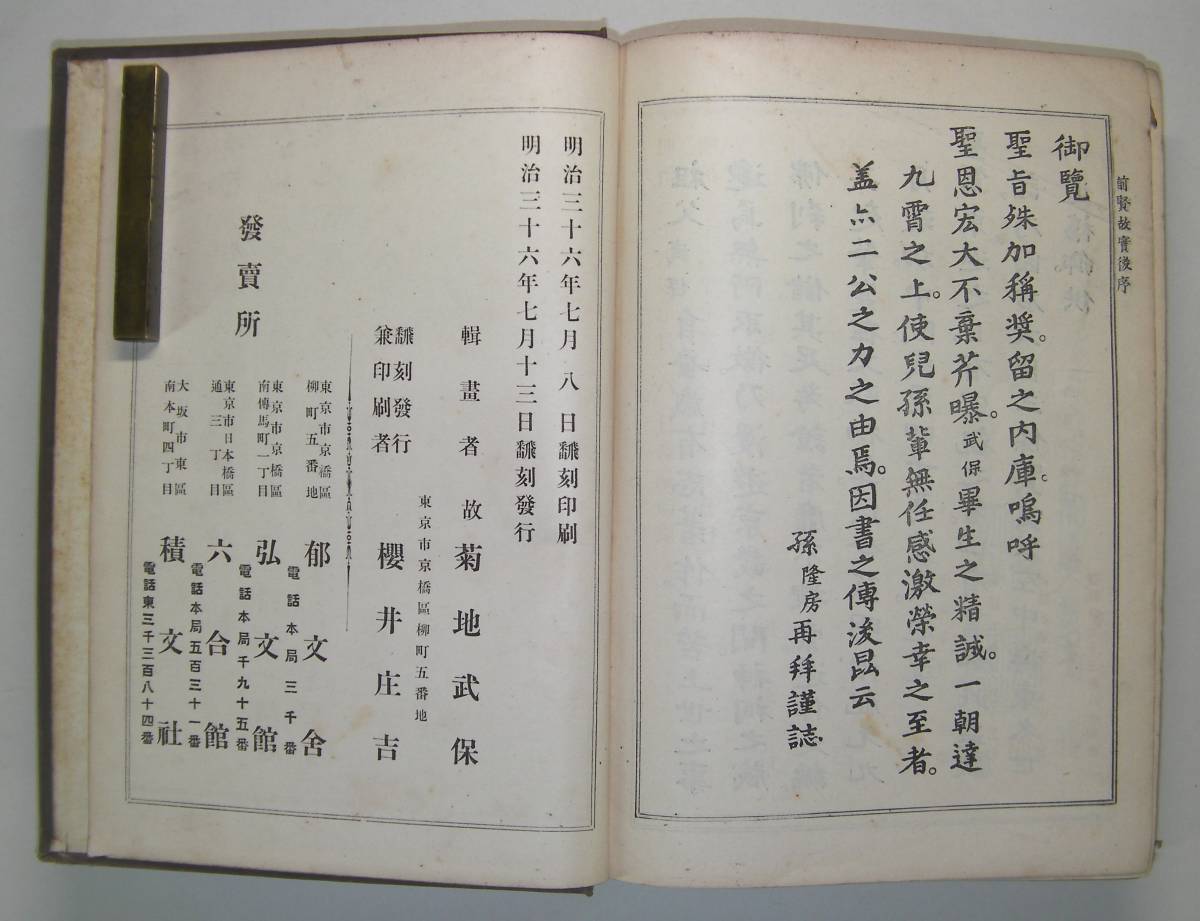 前賢故實後序
御覽
聖旨殊加稱奬。留之内庫。嗚呼
聖恩宏大不棄芹曝。武保畢生之精誠。一朝達
九霄之上。使兒孫輩無任感激榮幸之至者。
盖亦二公之力之由焉。因書之傳後昆云
孫隆房再拜謹誌
明治三十六年七月八日飜刻印刷
明治三十六年七月十三日飜刻發行
輯畫者 故菊地武保
東京市京橋區柳町五番地
飜刻發行
兼印刷者
櫻井庄吉
發賣所
東京市京橋區
柳町五番地
郁文舍
電話本局三千番
東京市京橋區
南傳馬町一丁目
弘文館
電話本局千九十五番
東京市日本橋區
通三丁目
六合館
電話本局五百三十一番
大坂市東區
南本町四丁目
積文社
電話東三千三百八十四番